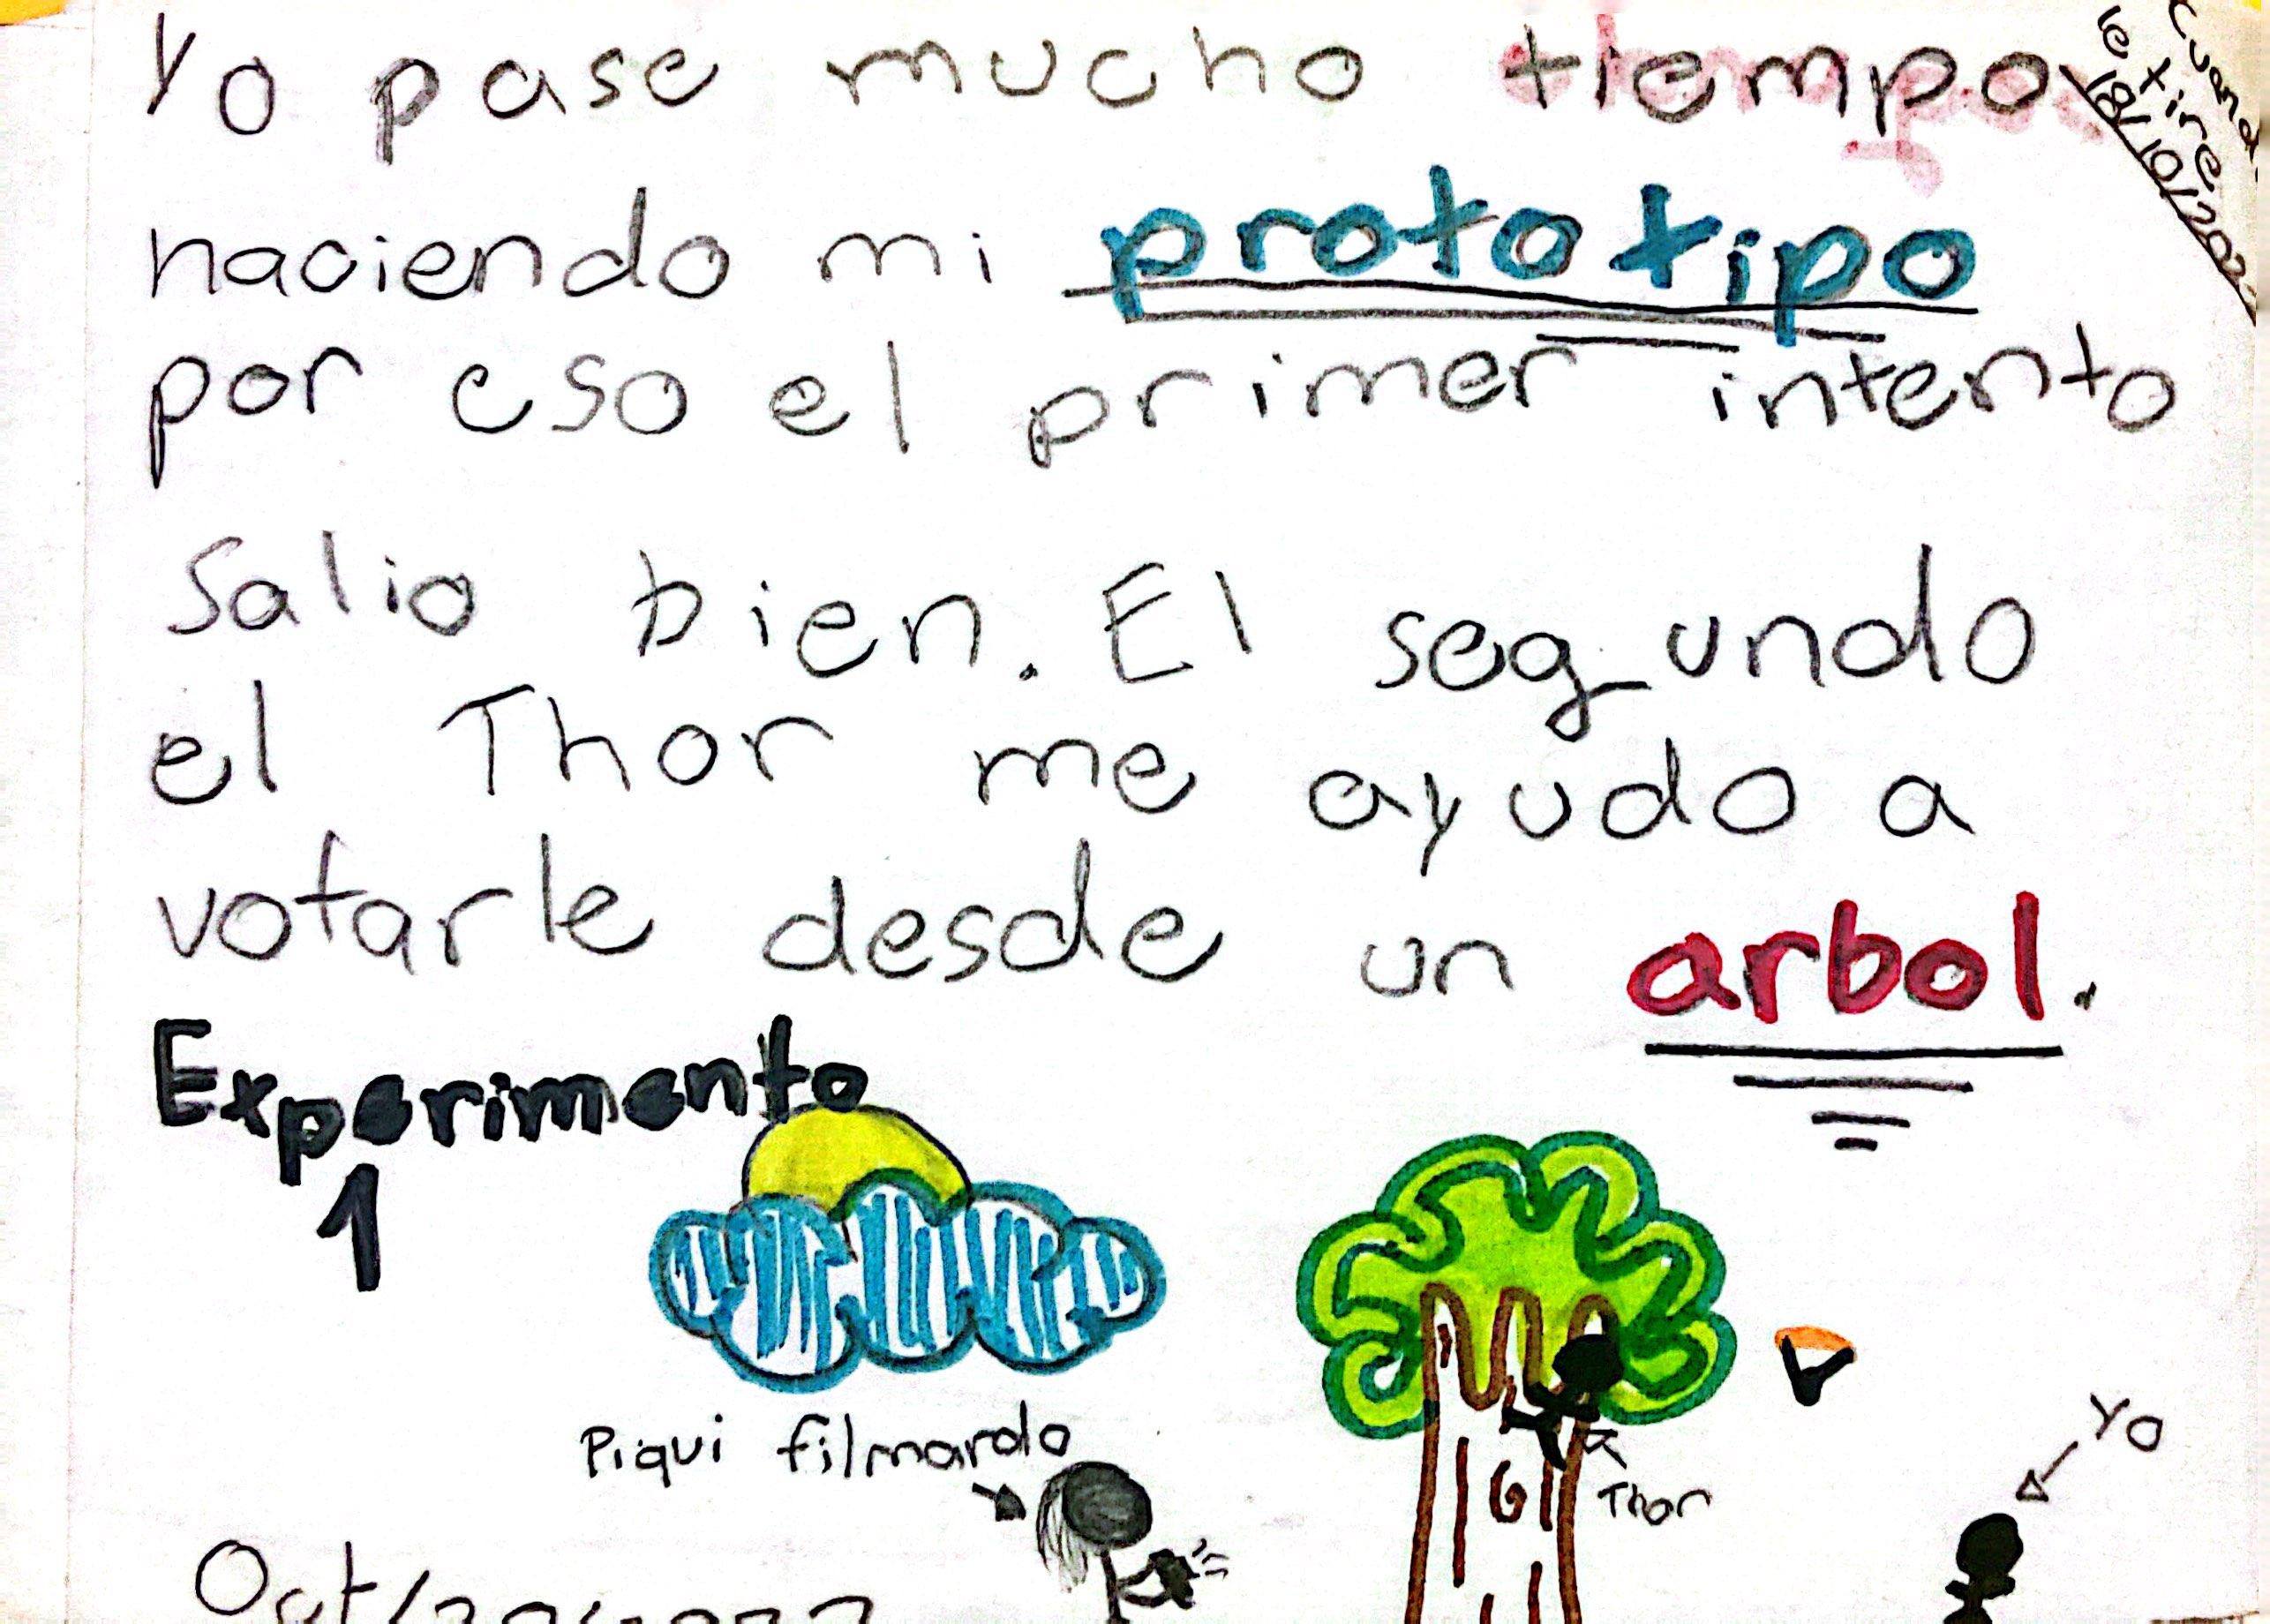 Yo pase mucho tiempo
haciendo mi prototipo
por eso el primer intento
salio bien. El seg_undo
el Thor me ayudo a
votarle desde un arbol.
Experimento
1
Piqui filmando
Thor
Yo
le tire
18/10/202